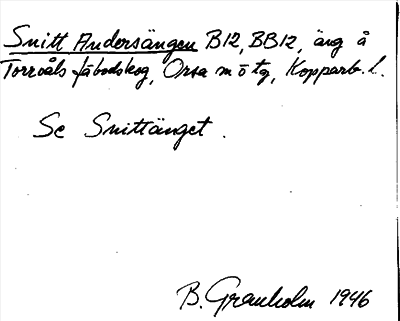 Snitt Andersängen B12, BB12, äng å
Torrvåls fäbodskog, Orsa m ö tg, Kopparb. l.
Se Snittänget.
B. Granholm 1946